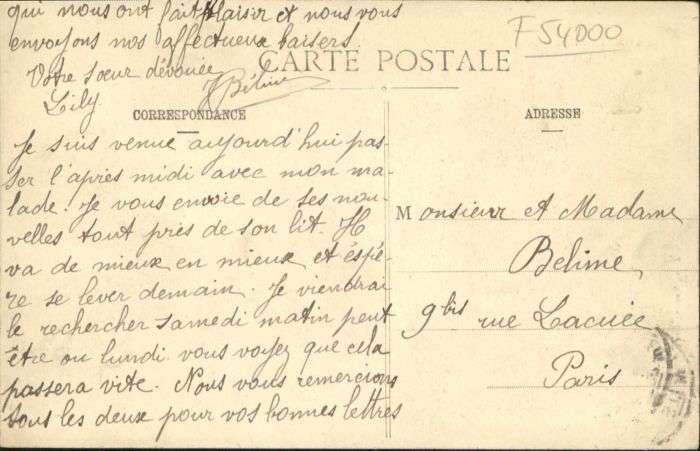 qui nous ont fait plaisir et nous vous
envoyons nos affectueux baisers
Votre sœur dévouée
Lily
Béline
F54000
CARTE POSTALE
CORRESPONDANCE
Je suis venue aujourd'hui pas-
ser l'après midi avec mon ma-
lade. Je vous envoie de ses nou-
velles tout près de son lit. Il
va de mieux en mieux et éspé-
re se lever demain. Je viendrai
le rechercher samedi matin peut
être ou lundi vous voyez que cela
passera vite. Nous vous remercions
tous les deux pour vos bonnes lettres
ADRESSE
Monsieur et Madame
Belime
9 bis rue Lacuée
Paris